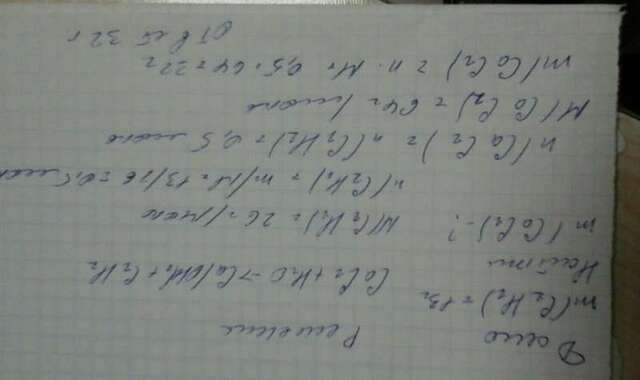 Дано
Решение
m(C2H2) = 13г
CaC2 + H2O → Ca(OH)2 + C2H2
Найти
m(CaC2) - ?
M(C2H2) = 26г/моль
n(C2H2) = m/M = 13/26 = 0,5 моль
n(CaC2) = n(C2H2) = 0,5 моль
M(CaC2) = 64г/моль
m(CaC2) = n · M = 0,5 · 64 = 32г
Ответ 32 г